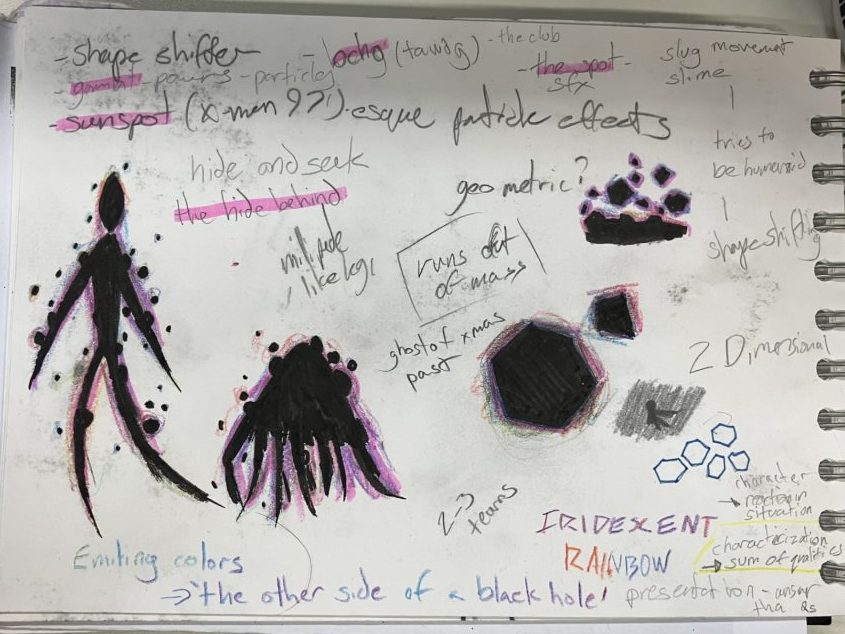 - shape shifter
- gambit - powers - particles
- sunspot (x-men 97') - esque particle effects
(tawdg)
- the club
- the spot -
sfx
slug movement
slime
|
tries to
be humanoid
|
shape shifting
hide and seek
the hide behind
geometric?
like legs
runs out
of mass
ghost of xmas
past
2 Dimensional
2-3
teams
IRIDEXENT
RAINBOW
character
→ reaction
situation
characterization
→ sum of qualities
Emiting colors
→ 'the other side of a black hole'
presentation - answr
tha Qs